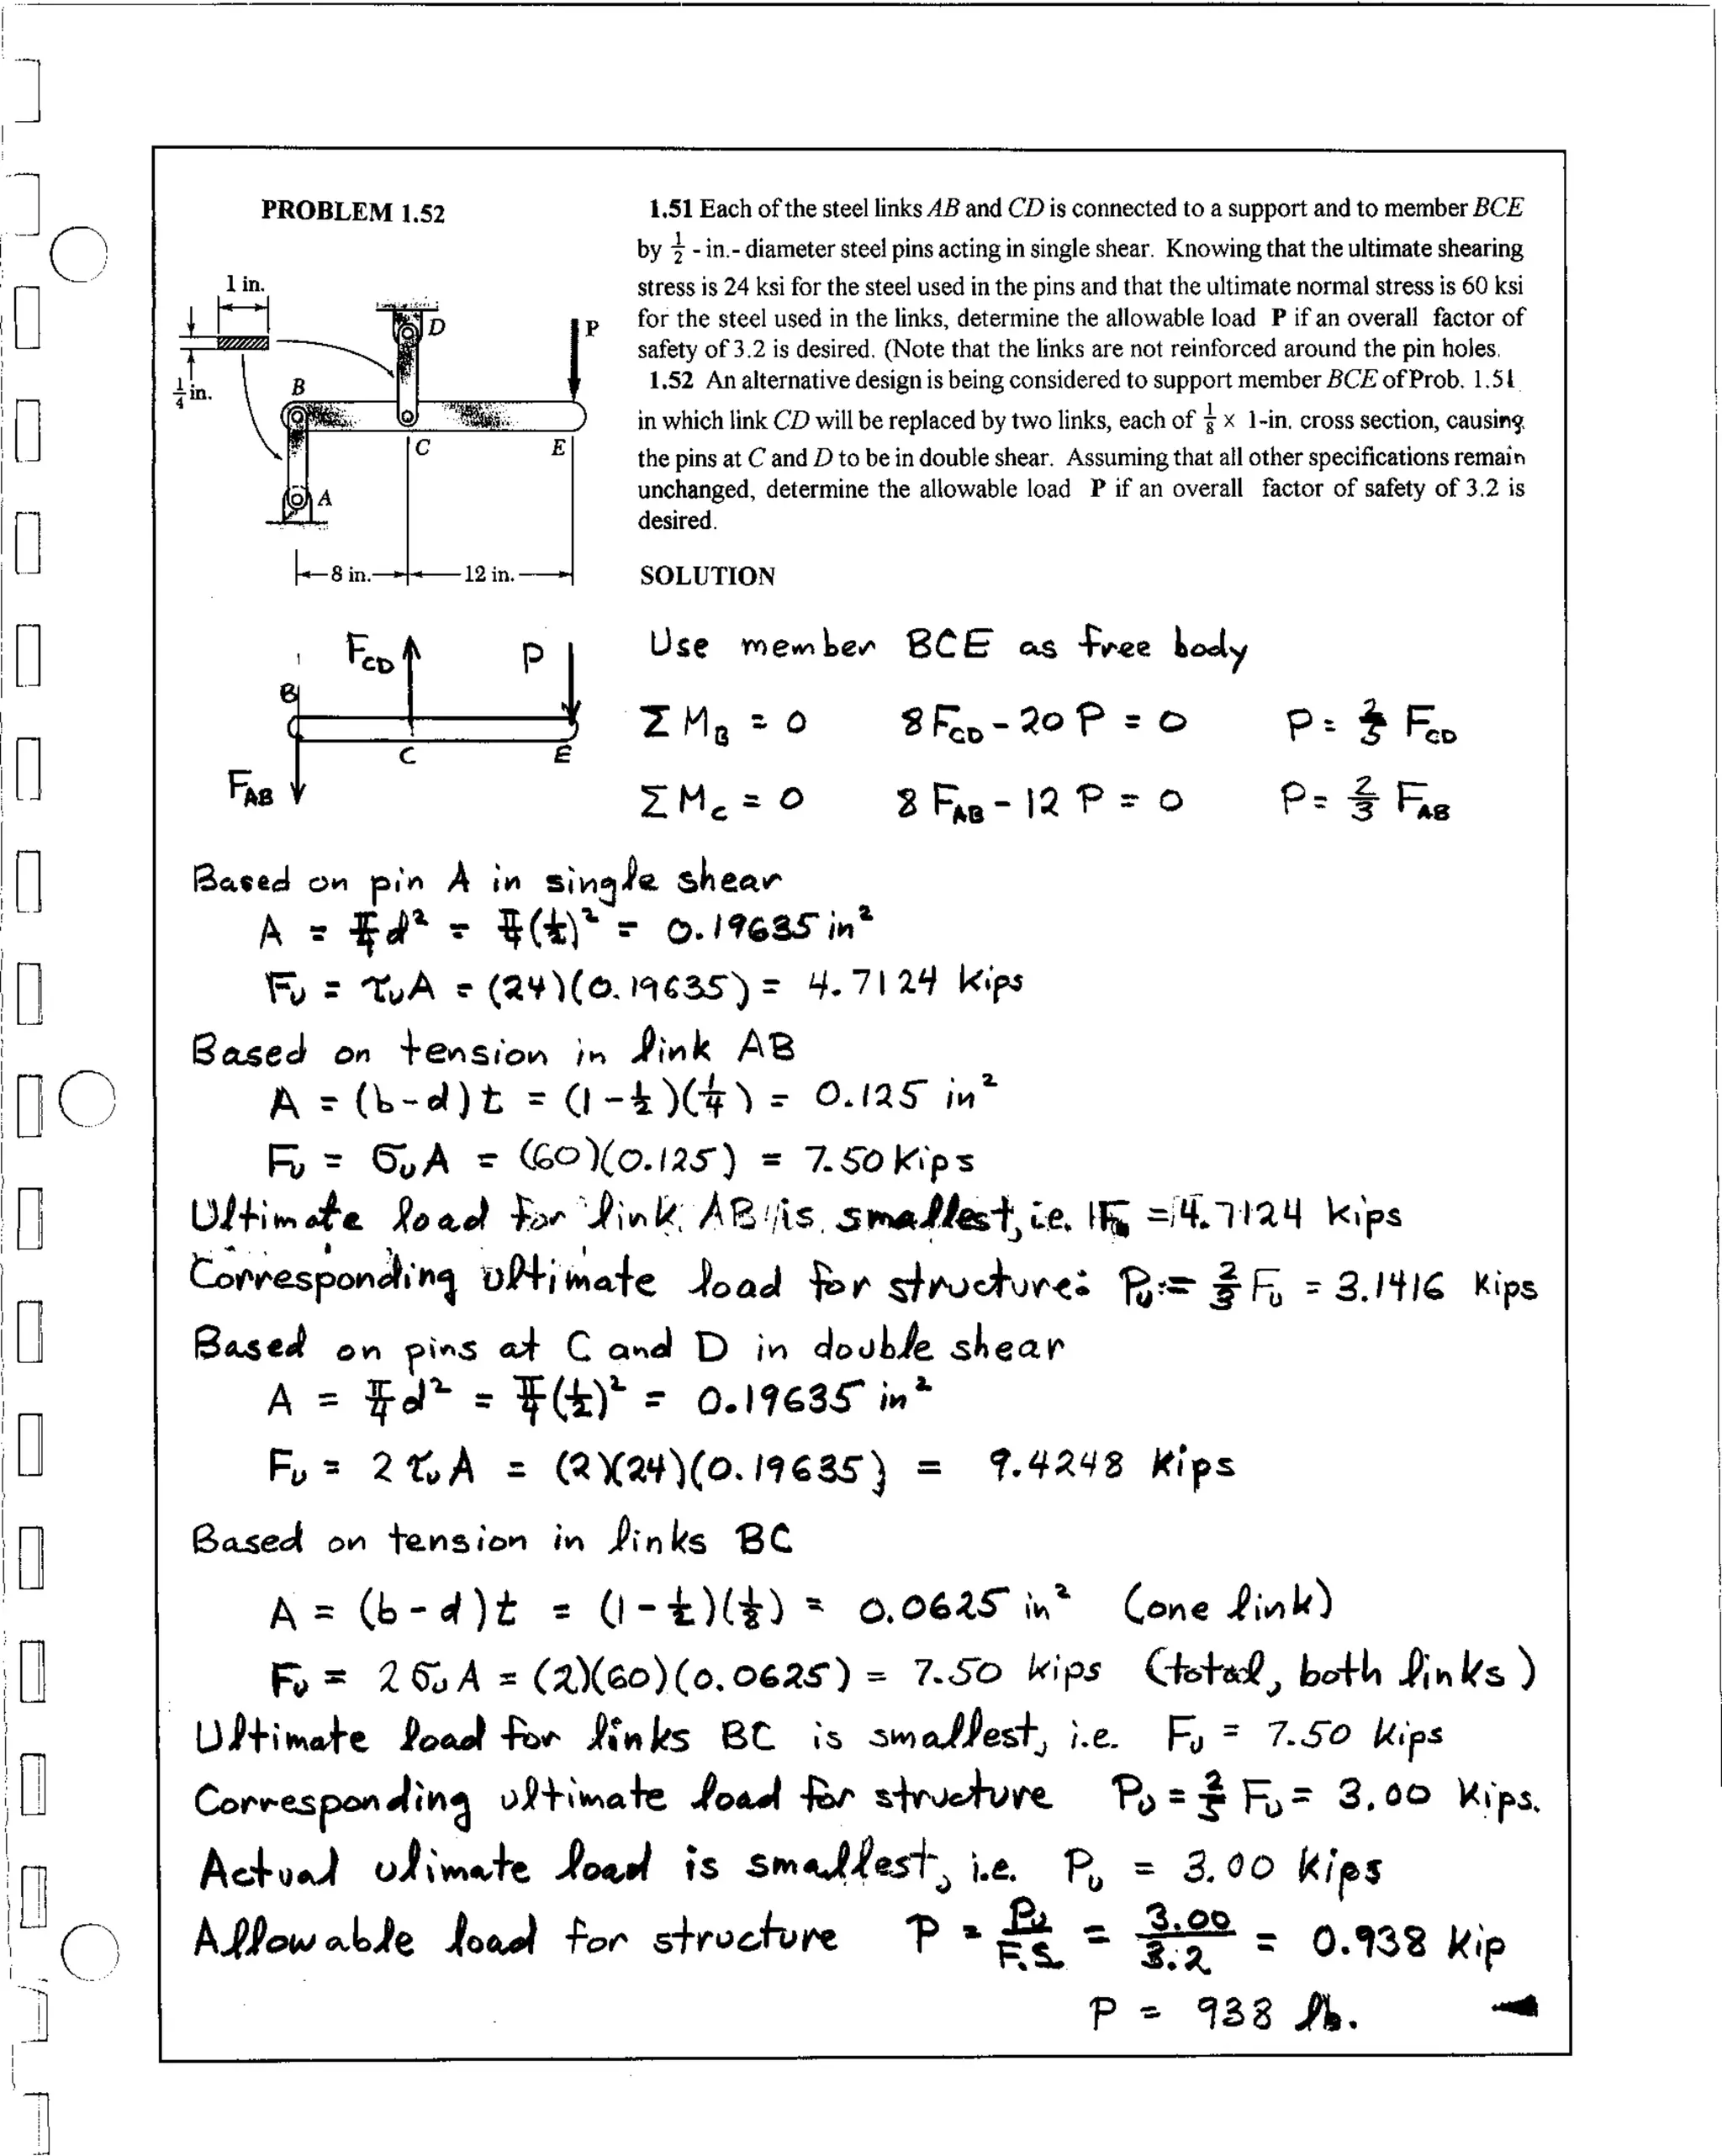 PROBLEM 1.52
1.51 Each of the steel links AB and CD is connected to a support and to member BCE
by 1/2 - in.- diameter steel pins acting in single shear. Knowing that the ultimate shearing
stress is 24 ksi for the steel used in the pins and that the ultimate normal stress is 60 ksi
for the steel used in the links, determine the allowable load P if an overall factor of
safety of 3.2 is desired. (Note that the links are not reinforced around the pin holes.
1.52 An alternative design is being considered to support member BCE of Prob. 1.51
in which link CD will be replaced by two links, each of 1/8 × 1-in. cross section, causing
the pins at C and D to be in double shear. Assuming that all other specifications remain
unchanged, determine the allowable load P if an overall factor of safety of 3.2 is
desired.
1 in.
1/4 in.
D
P
B
C
E
A
8 in.
12 in.
SOLUTION
F_CD
P
B
C
E
F_AB
Use member BCE as free body
Σ M_B = 0 8 F_CD - 20 P = 0 P = 2/5 F_CD
Σ M_C = 0 8 F_AB - 12 P = 0 P = 2/3 F_AB
Based on pin A in single shear
A = π/4 d² = π/4 (1/2)² = 0.19635 in²
F_U = τ_U A = (24)(0.19635) = 4.7124 kips
Based on tension in link AB
A = (b-d)t = (1-1/2)(1/4) = 0.125 in²
F_U = σ_U A = (60)(0.125) = 7.50 kips
Ultimate load for link AB is smallest, i.e. F_U = 4.7124 kips
Corresponding ultimate load for structure: P_U = 2/3 F_U = 3.1416 kips
Based on pins at C and D in double shear
A = π/4 d² = π/4 (1/2)² = 0.19635 in²
F_U = 2 τ_U A = (2)(24)(0.19635) = 9.4248 kips
Based on tension in links BC
A = (b-d)t = (1-1/2)(1/8) = 0.0625 in² (one link)
F_U = 2 σ_U A = (2)(60)(0.0625) = 7.50 kips (total, both links)
Ultimate load for links BC is smallest, i.e. F_U = 7.50 kips
Corresponding ultimate load for structure P_U = 2/5 F_U = 3.00 kips.
Actual ulimate load is smallest, i.e. P_U = 3.00 kips
Allowable load for structure P = P_U/F.S. = 3.00/3.2 = 0.938 kip
P = 938 lb.